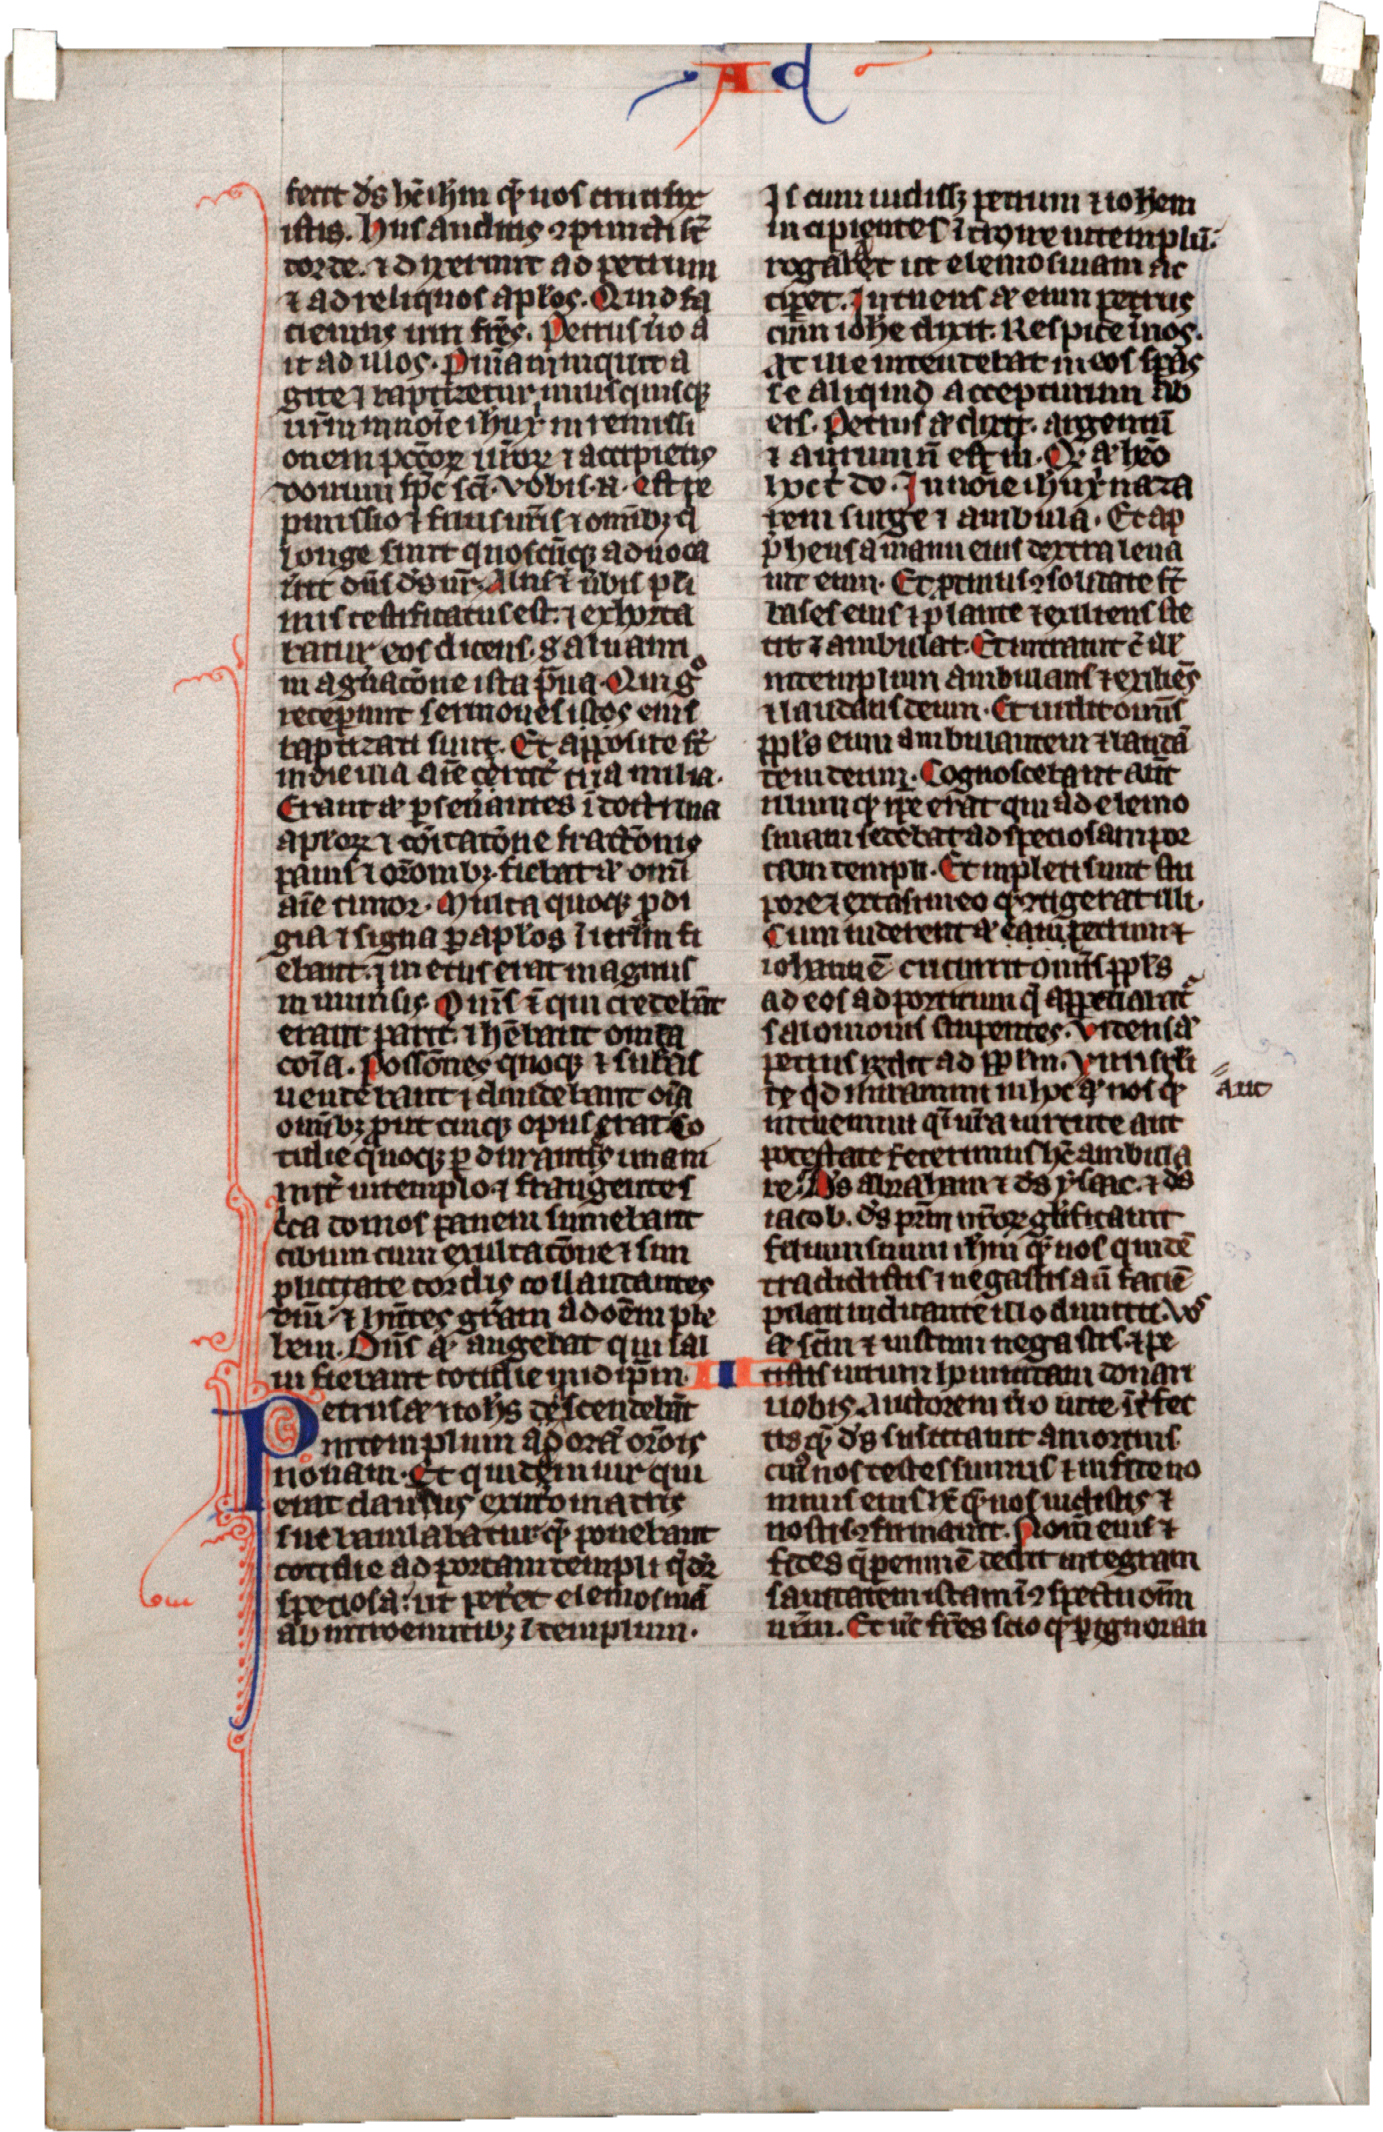 Ad
fecit ds hc ihm que vos crucifix
istis. Hiis auditis conpuncti st
corde. et dixerunt ad petrum
et ad reliquos aplos. Quid fa
ciemus viri fres. Petrus vo a
it ad illos. Pniam inquit a
gite et baptizetur unusquisque
vrm in noie ihu xi in remissi
onem pccor vror et accipietis
donum spc sci. Vobis .n. est re
pmissio et filiis vris et omibz q
longe sunt quoscuqz advoca
vit dns ds nr. Aliis et vbis pli
mis testificatus est. et exhorta
batur eos dicens. Salvami
ni a gnacone ista prava. Qui g
receperunt sermones istos eius
baptizati sunt. Et apposite st
in die illa aie circit tria milia.
Erant aut pseverantes i doctrina
aplor et coicatone fractonis
panis et oronibz. fiebat aut omi
aie timor. Multa quoqz pdi
gia et signa p aplos i ierlm fi
ebant. et metus erat magnus
in univsis. Oms et qui credebat
erant parit. et hebant omia
coia. Possones quoqz et subas
vendebant et dividebant oia
omibz prout cuiqz opus erat. Co
tidie quoqz pdurantes unani
mit in templo. et frangentes
cca domos panem sumebant
cibum cum exultacone et sim
plicitate cordis collaudantes
dm. et hntes gram ad oem ple
bem. Dns aut augebat qui sal
vi fierant cotidie in id ipm. III
Petrus aut et iohs descendebat
in templum ad ora orois
nonam. Et quidem vir qui
erat claudus ex utero matris
sue baiulabatur que ponebant
cotidie ad portam templi q dr
speciosa. ut peret elemosina
ab introeuntibz i templum.
Is cum vidissz petrum et iohem
incipientes itroire in templu.
rogabat ut elemosinam ac
ciperet. Intuens aut eum petrus
cum iohe dixit. Respice i nos.
At ille intendebat in eos spas
se aliquid accepturum ab
eis. Petrus aut dixit. argentu
et aurum n est m. Q aut heo
hoc t do. In noie ihu xi naza
reni surge et ambula. Et ap
phensa manu eius dextra leva
vit eum. Et ptinus consolidate st
bases eius et plante et exiliens ste
tit et ambulat. Et intravit c ill
in templum ambulans et exiliens
et laudans deum. Et vidit omnis
ppls eum ambulantem et lauda
tem deum. Cognoscebant aut
illum q ipe erat qui ad elemo
sinam sedebat ad speciosam por
tam templi. Et impleti sunt stu
pore et extasi in eo q contigerat illi.
Cum viderent aut eam petrum et
iohanne cucurrit omis ppls
ad eos ad porticum q appellatur
salomonis stupentes. Videns aut
petrus rndit ad pplm. Viri isrli
te qd miramini in hoc aut nos q
aut
intuemini qi nra virtute aut
potestate fecerimus hc ambula
re. Ds abraham et ds ysaac. et ds
iacob. ds prm nror glificavit
filium suum ihm que vos quide
tradidistis et negastis an facie
pilati iudicante illo dimitti. Vos
aut scm et iustum negastis. et pe
tistis virum homicidam donari
vobis. Auctorem vo vite intfec
tis que ds suscitavit a mortuis
cui nos testes sumus et in fide no
minis eius hc que vos vidistis et
nostis confirmavit. Nomen eius et
fides q p eum e dedit integram
sanitatem istam i conspectu om
vrm. Et nc fres scio q p ignoran